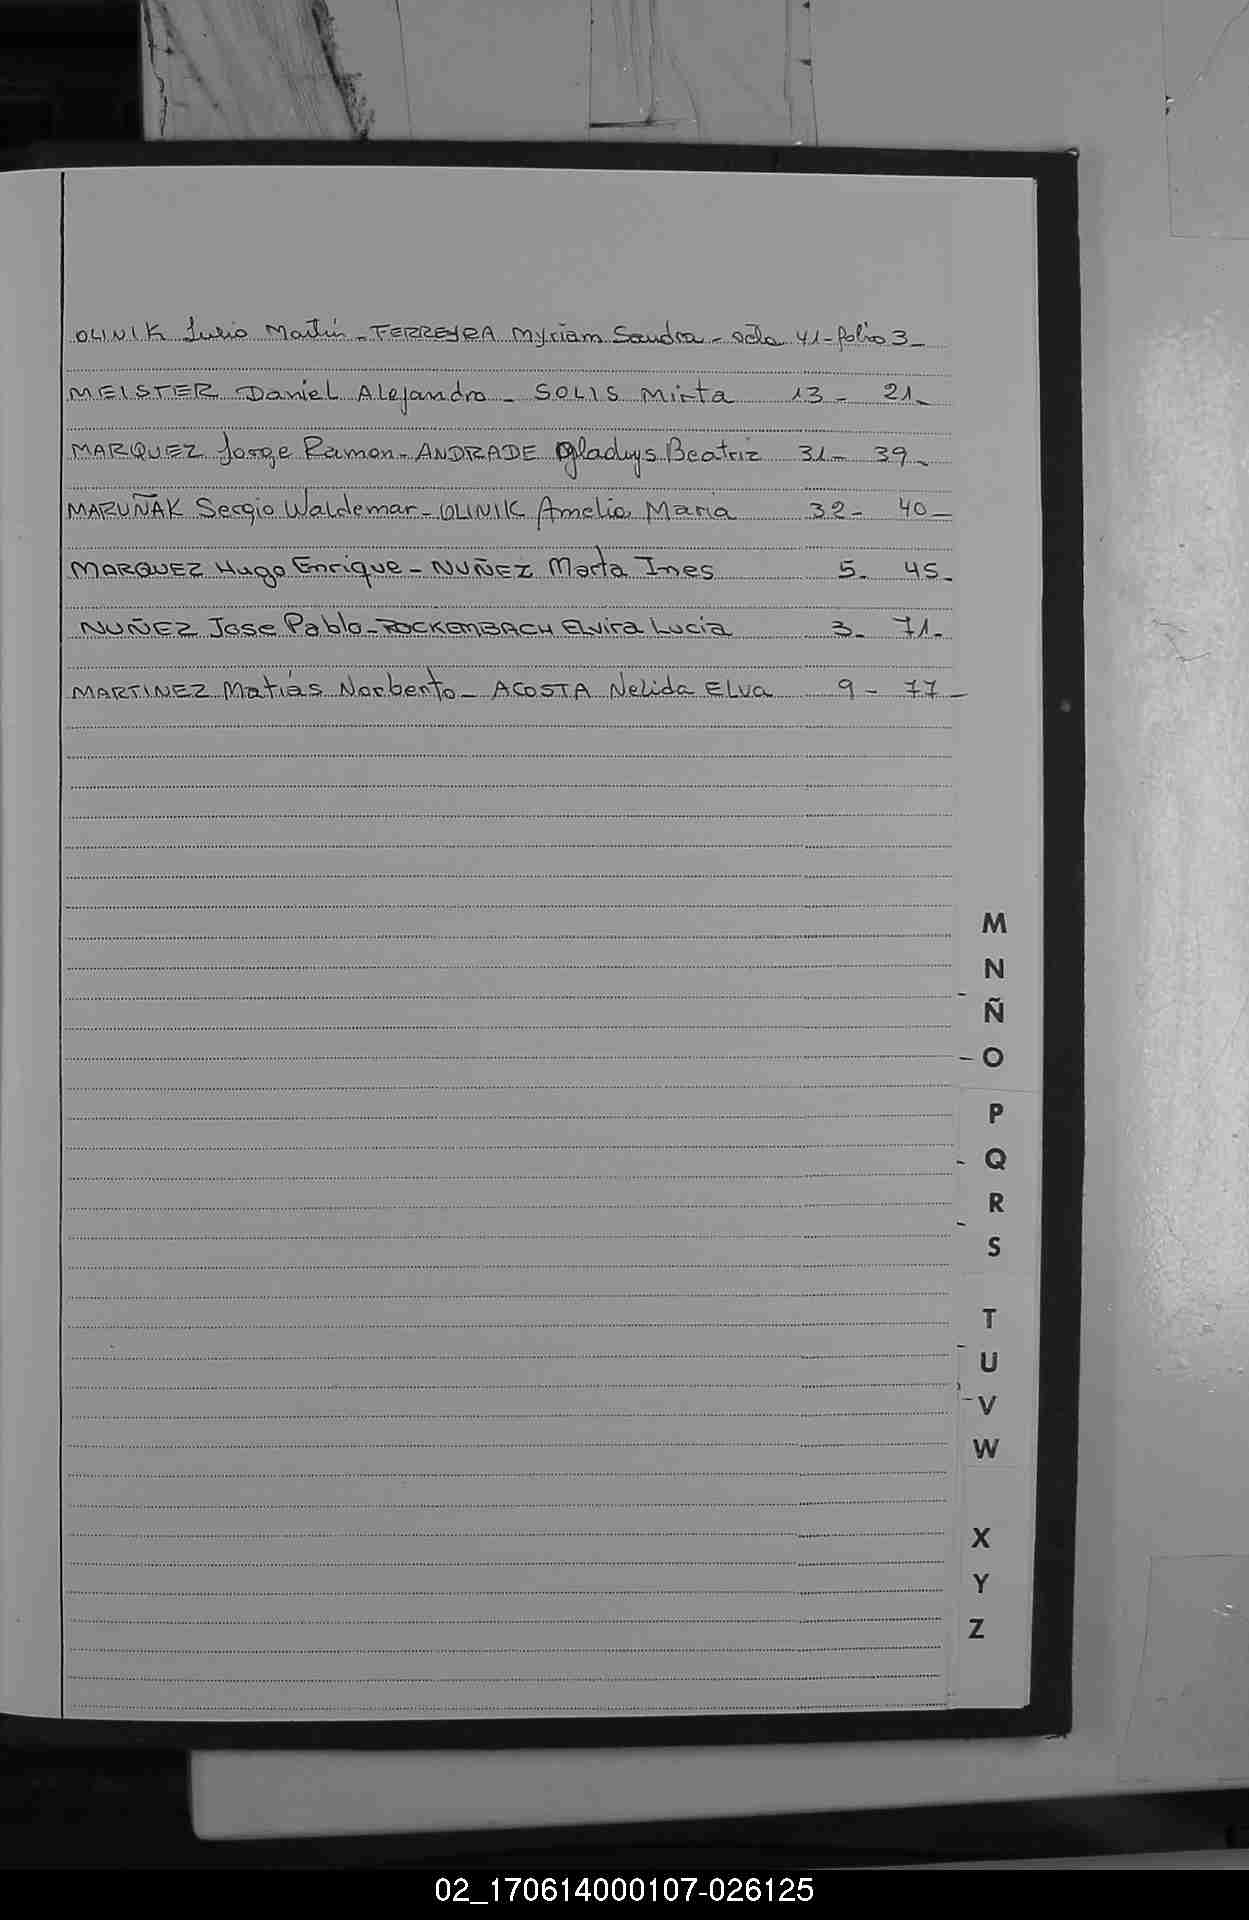 OLINIK Julio Martín - FERREYRA Myriam Sandra - acta 41 - folio 3 -
MEISTER Daniel Alejandro - SOLIS Mirta 13 - 21 -
MARQUEZ Jorge Ramon - ANDRADE Gladys Beatriz 31 - 39 -
MARUÑAK Sergio Waldemar - OLINIK Amelia Maria 32 - 40 -
MARQUEZ Hugo Enrique - NUÑEZ Marta Ines 5 - 45 -
NUÑEZ Jose Pablo - ROCKEMBACH Elvira Lucia 3 - 71 -
MARTINEZ Matiás Norberto - ACOSTA Nelida ELVA 9 - 77 -
M
N
Ñ
O
P
Q
R
S
T
U
V
W
X
Y
Z
02_170614000107-026125